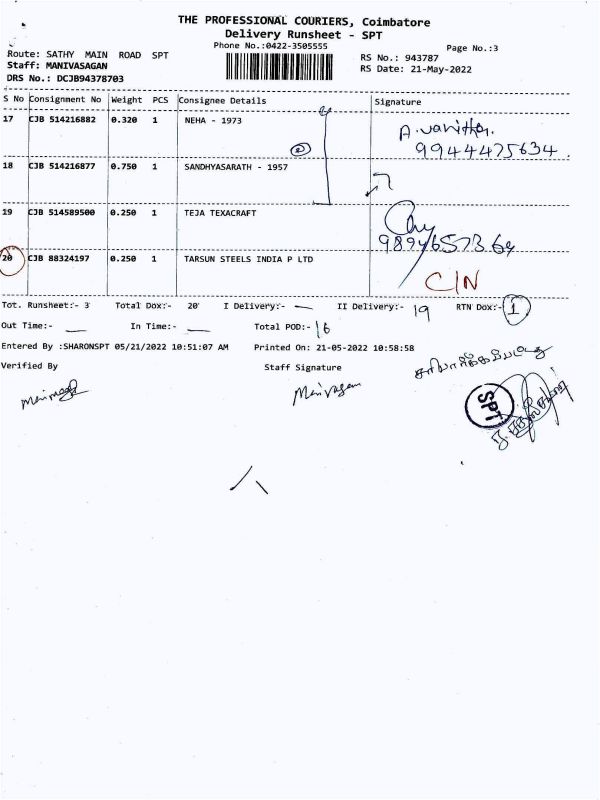 THE PROFESSIONAL COURIERS, Coimbatore
Delivery Runsheet - SPT
Phone No.:0422-3505555
Page No.:3
Route: SATHY MAIN ROAD SPT
RS No.: 943787
Staff: MANIVASAGAN
RS Date: 21-May-2022
DRS No.: DCJB94378703
S No Consignment No Weight PCS Consignee Details Signature
17 CJB 514216882 0.320 1 NEHA - 1973 A. Vanitha.
9944475634.
18 CJB 514216877 0.750 1 SANDHYASARATH - 1957
19 CJB 514589500 0.250 1 TEJA TEXACRAFT
20 CJB 88324197 0.250 1 TARSUN STEELS INDIA P LTD
C/N
Tot. Runsheet:- 3 Total Dox:- 20 I Delivery:- — II Delivery:- 19 RTN Dox:- 1
Out Time:- — In Time:- — Total POD:- 16
Entered By :SHARONSPT 05/21/2022 10:51:07 AM Printed On: 21-05-2022 10:58:58
Verified By Staff Signature
Manivasagan
SPT